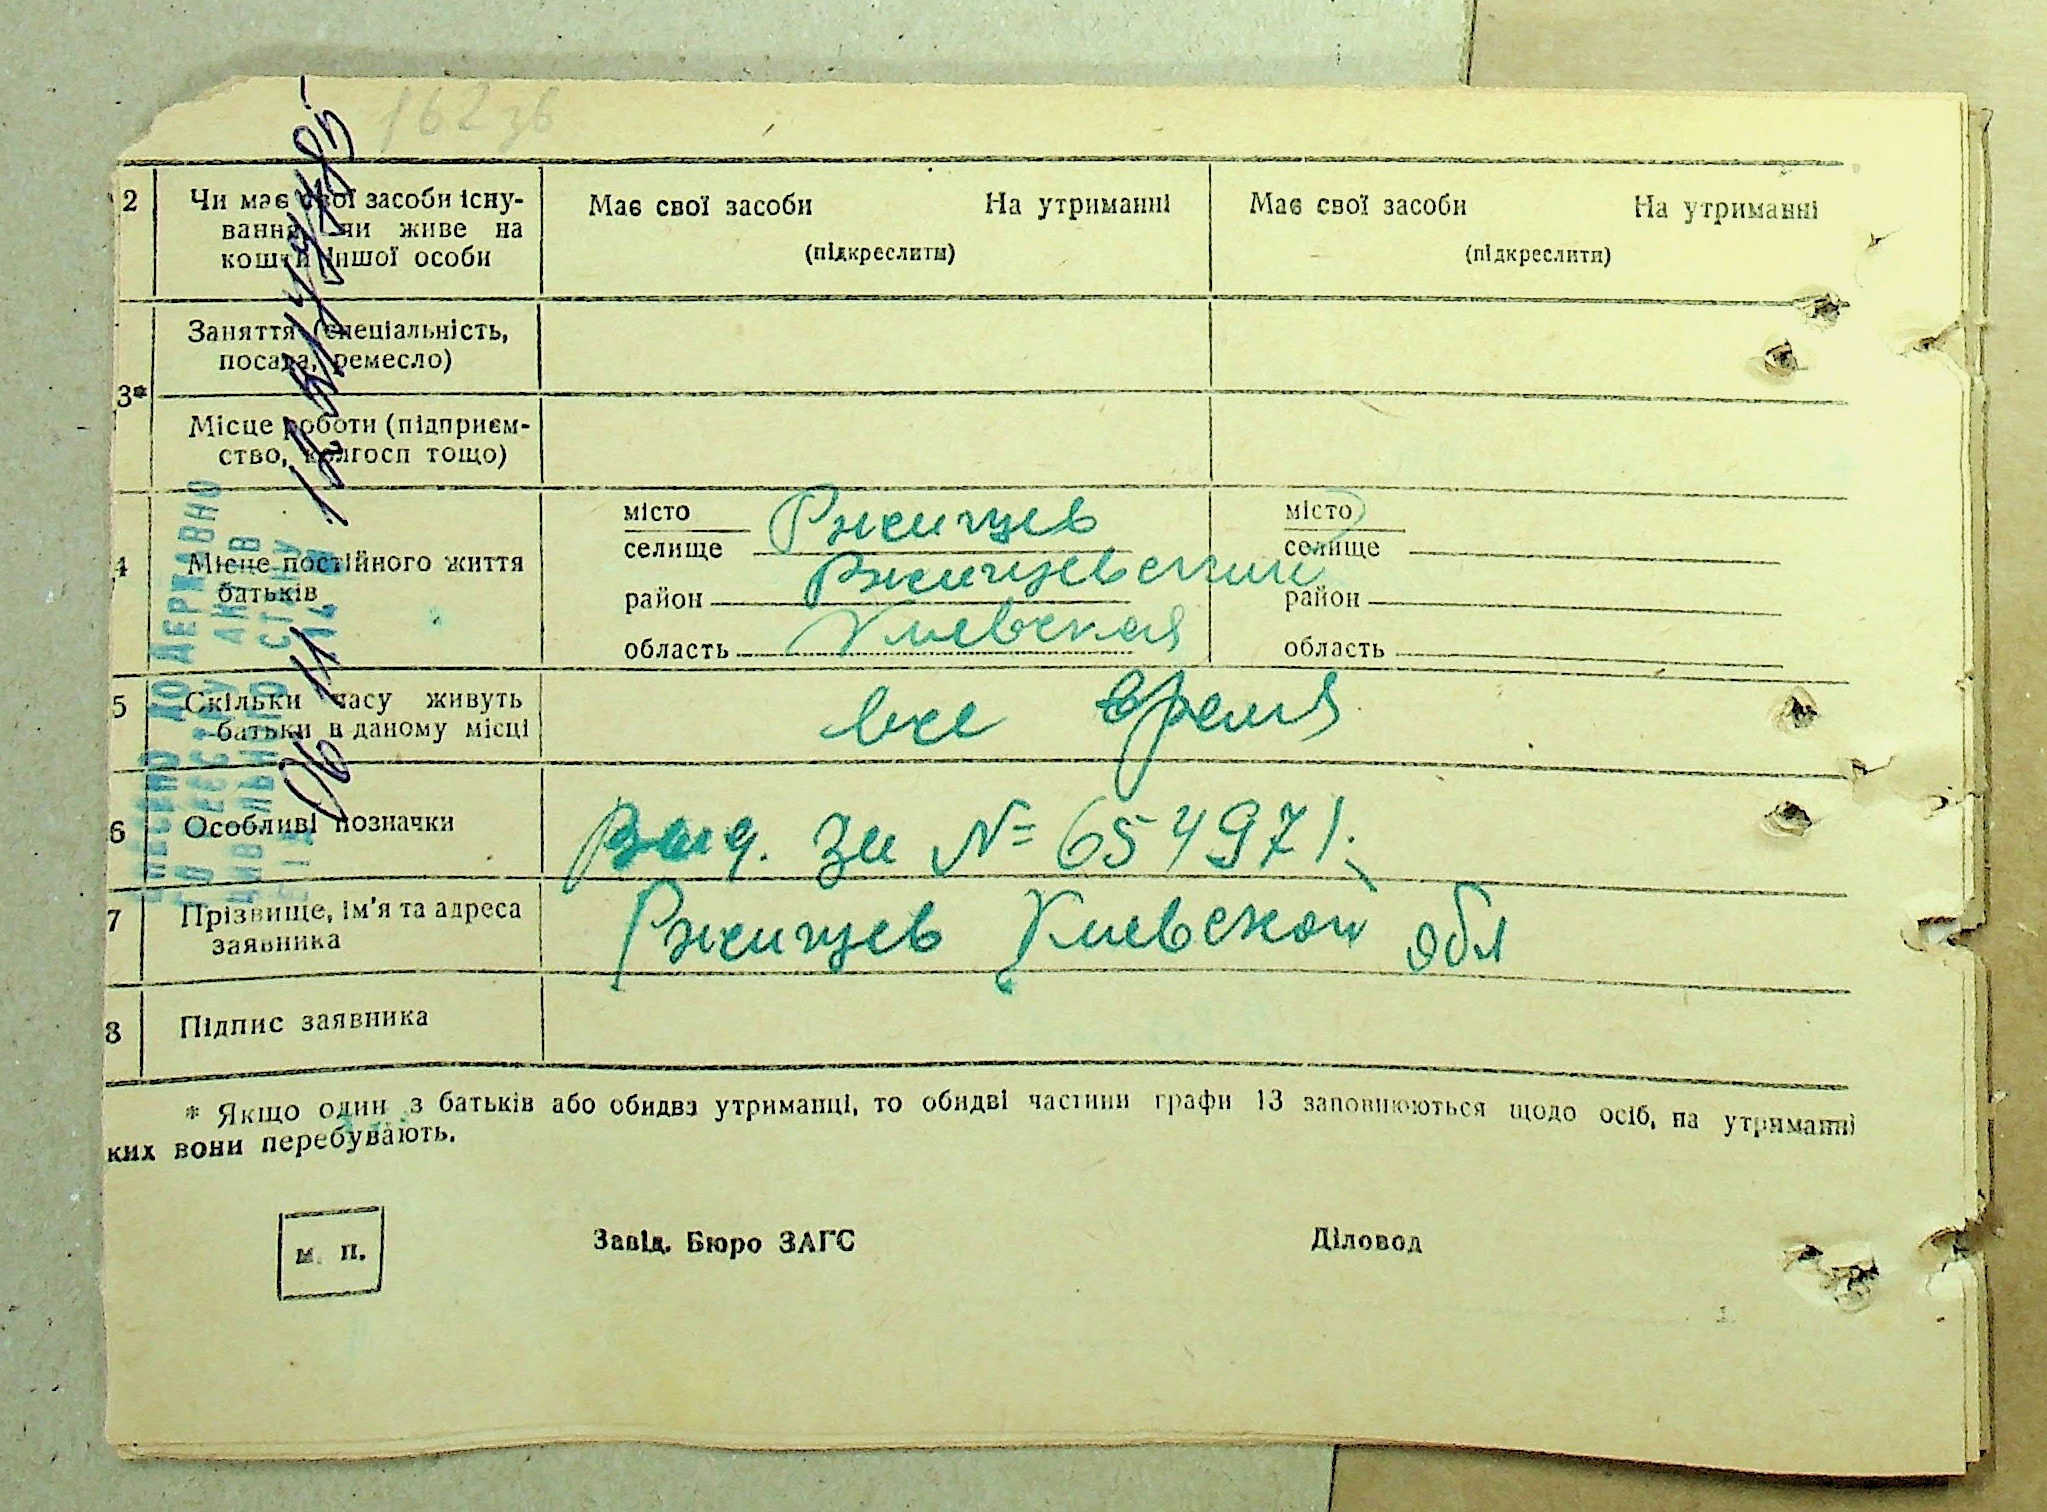 162 зв
2 Чи має свої засоби існу-
вання, чи живе на
кошти іншої особи
Має свої засоби На утриманні
(підкреслити)
Має свої засоби На утриманні
(підкреслити)
3*
Заняття (спеціальність,
посада, ремесло)
Місце роботи (підприєм-
ство, колгосп тощо)
4 Місце постійного життя
батьків
місто Ржищев
селище
район Ржищевский
область Киевская
місто
селище
район
область
5 Скільки часу живуть
батьки в даному місці
все время
6 Особливі позначки
Выд. за № 654971.
7 Прізвище, ім'я та адреса
заявника
Ржищев Киевской обл
8 Підпис заявника
* Якщо один з батьків або обидва утриманці, то обидві частини графи 13 заповнюються щодо осіб, на утриманні
ких вони перебувають.
м. п.
Завід. Бюро ЗАГС
Діловод
ВНЕСЕНО ДО ДЕРЖАВНО
ГО РЕЄСТРУ АКТІВ
ЦИВІЛЬНОГО СТАНУ